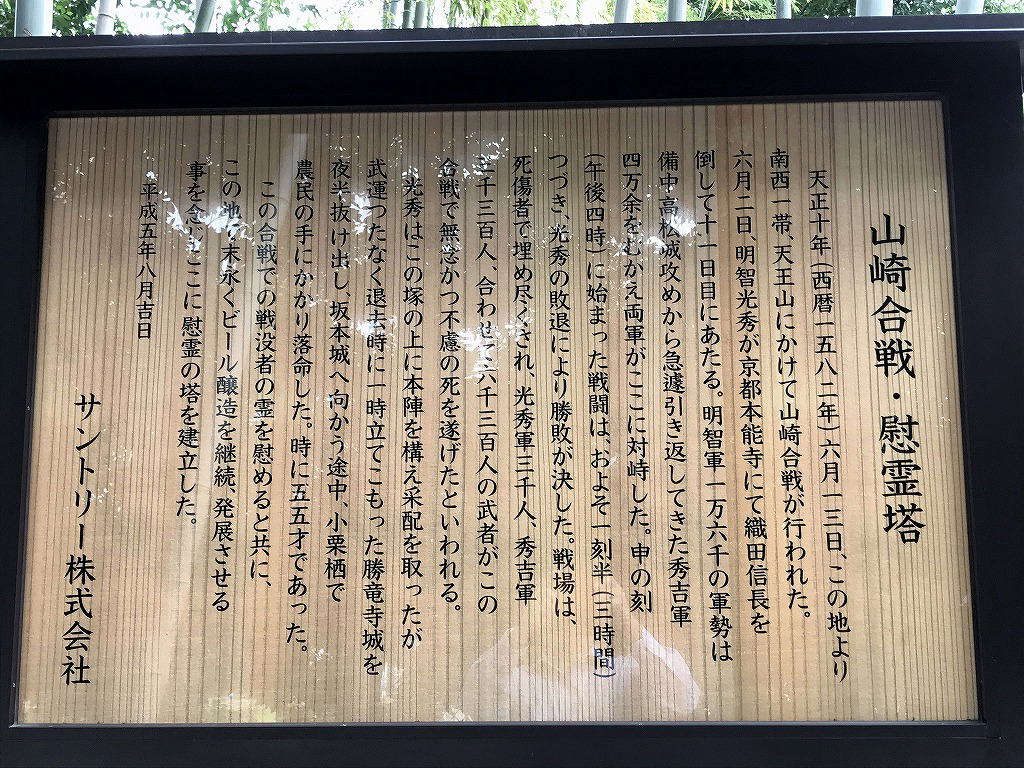 山崎合戦・慰霊塔
天正十年(西暦一五八二年)六月一三日、この地より
南西一帯、天王山にかけて山崎合戦が行われた。
六月二日、明智光秀が京都本能寺にて織田信長を
倒して十一日目にあたる。明智軍一万六千の軍勢は
備中高松城攻めから急遽引き返してきた秀吉軍
四万余をむかえ両軍がここに対峙した。申の刻
(午後四時)に始まった戦闘は、およそ一刻半(三時間)
つづき、光秀の敗退により勝敗が決した。戦場は、
死傷者で埋め尽くされ、光秀軍三千人、秀吉軍
三千三百人、合わせて六千三百人の武者がこの
合戦で無念かつ不慮の死を遂げたといわれる。
光秀はこの塚の上に本陣を構え采配を取ったが
武運つたなく退去時に一時立てこもった勝竜寺城を
夜半抜け出し、坂本城へ向かう途中、小栗栖で
農民の手にかかり落命した。時に五五才であった。
この合戦での戦没者の霊を慰めると共に、
この池で末永くビール醸造を継続、発展させる
事を念じここに慰霊の塔を建立した。
平成五年八月吉日
サントリー株式会社